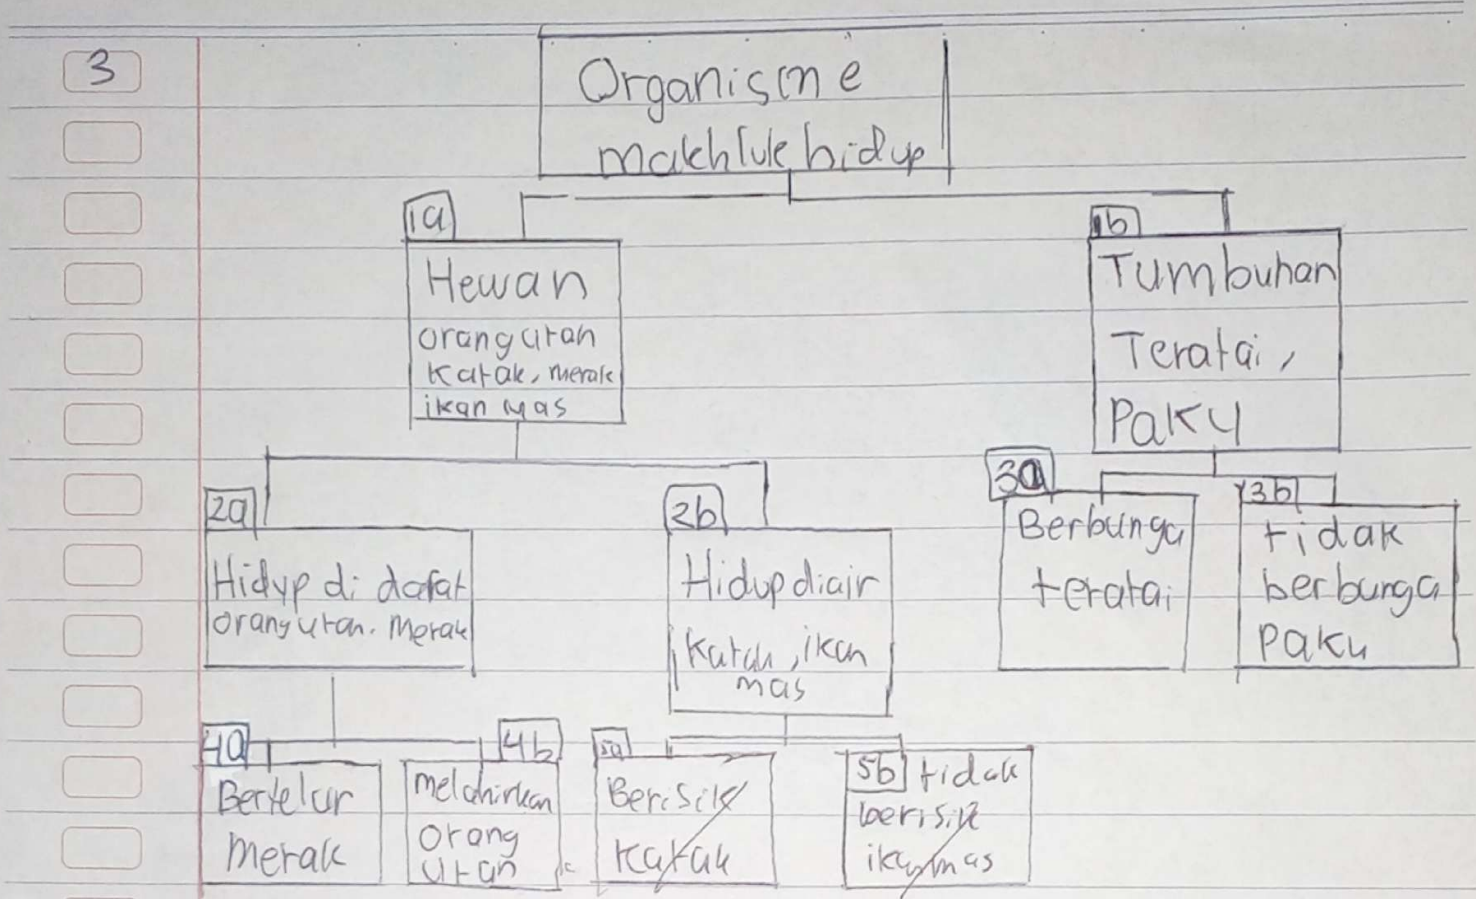 3
Organisme
makhluk hidup
1a
Hewan
orang utan
Katak, merak
ikan mas
1b
Tumbuhan
Teratai,
Paku
2a
Hidup di darat
orang utan. Merak
2b
Hidup diair
Katak, ikan
mas
3a
Berbunga
teratai
3b
tidak
berbunga
Paku
4a
Bertelur
merak
4b
melahirkan
orang
utan
5a
Berisik
Katak
5b tidak
berisik
ikan mas